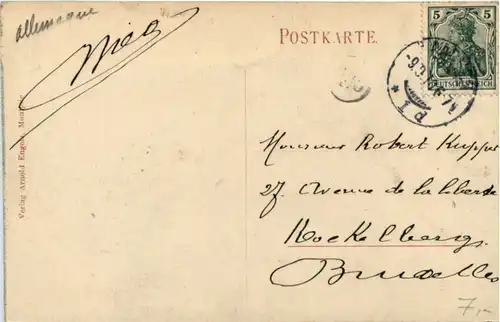 allemagne
POSTKARTE.
5 5
DEUTSCHES REICH
Verlag Arnold
Monsieur Robert Kuyper
27. Avenue de la liberté
Koekelberg.
Bruxelles
7,-